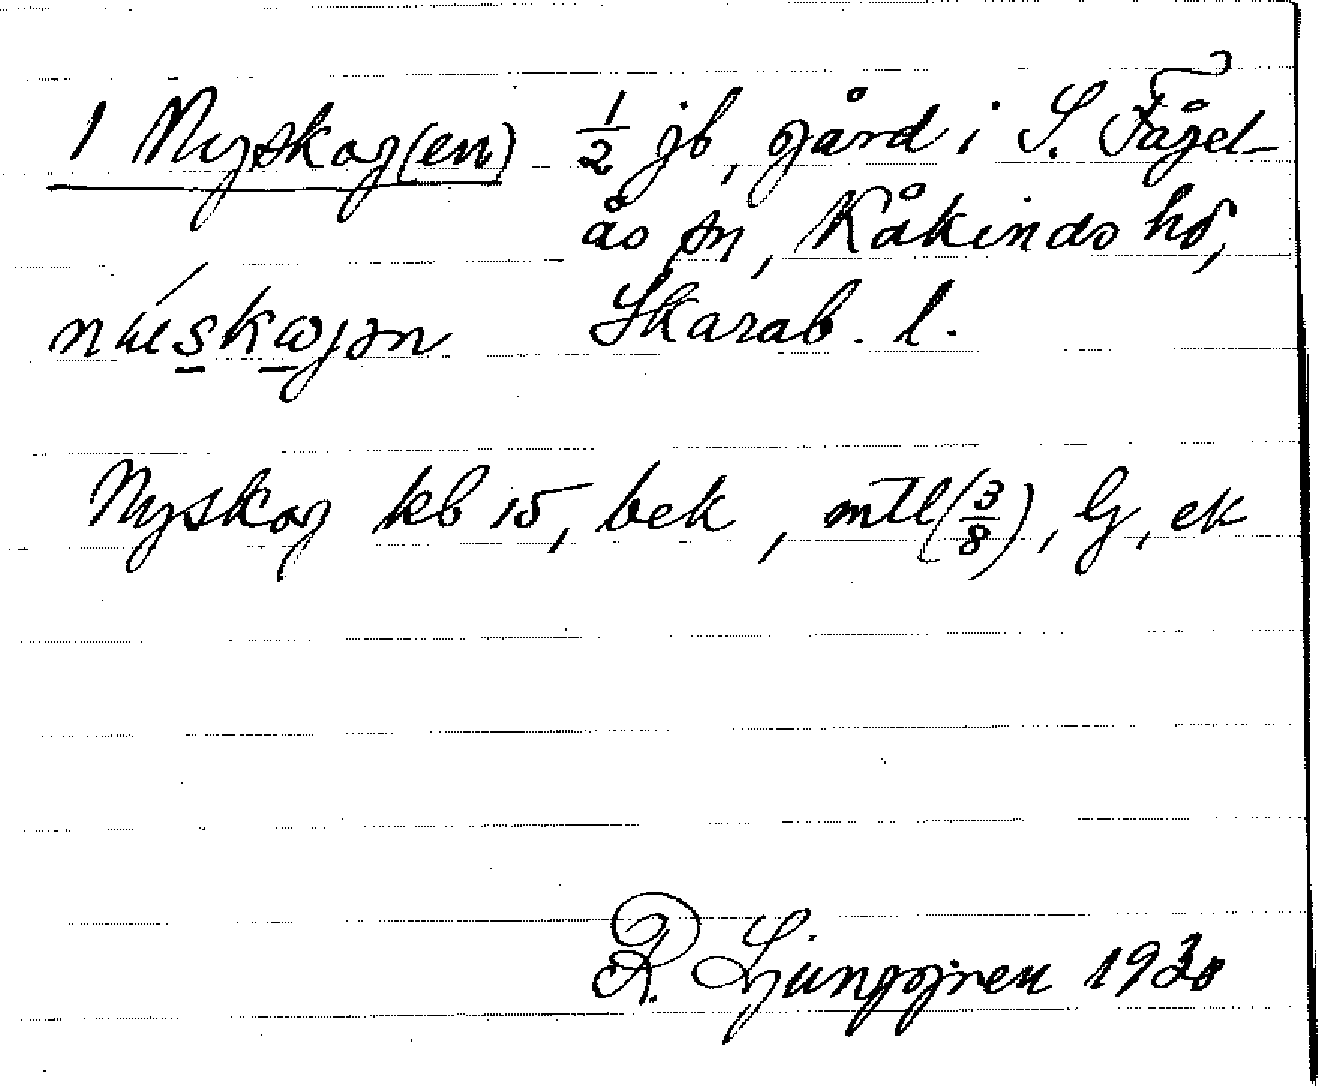 1 Nyskog(en) 1/2 jb, gård i S. Fågel-
ås sn, Kåkinds hd,
Skarab. l.
Nyskog kb 15, bek, mtl (3/8), G, ek
R. Ljunggren 1930